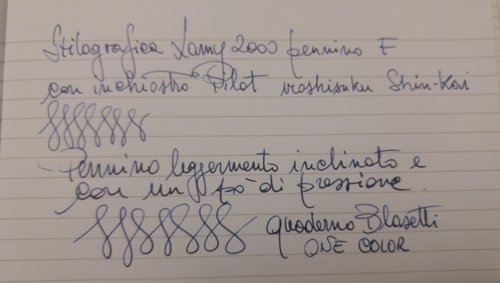 Stilografica Lamy 2000 pennino F
con inchiostro Pilot iroshizuku Shin-Kai
- Pennino leggermento inclinato e
con un pò di pressione.
quaderno Blasetti
ONE COLOR